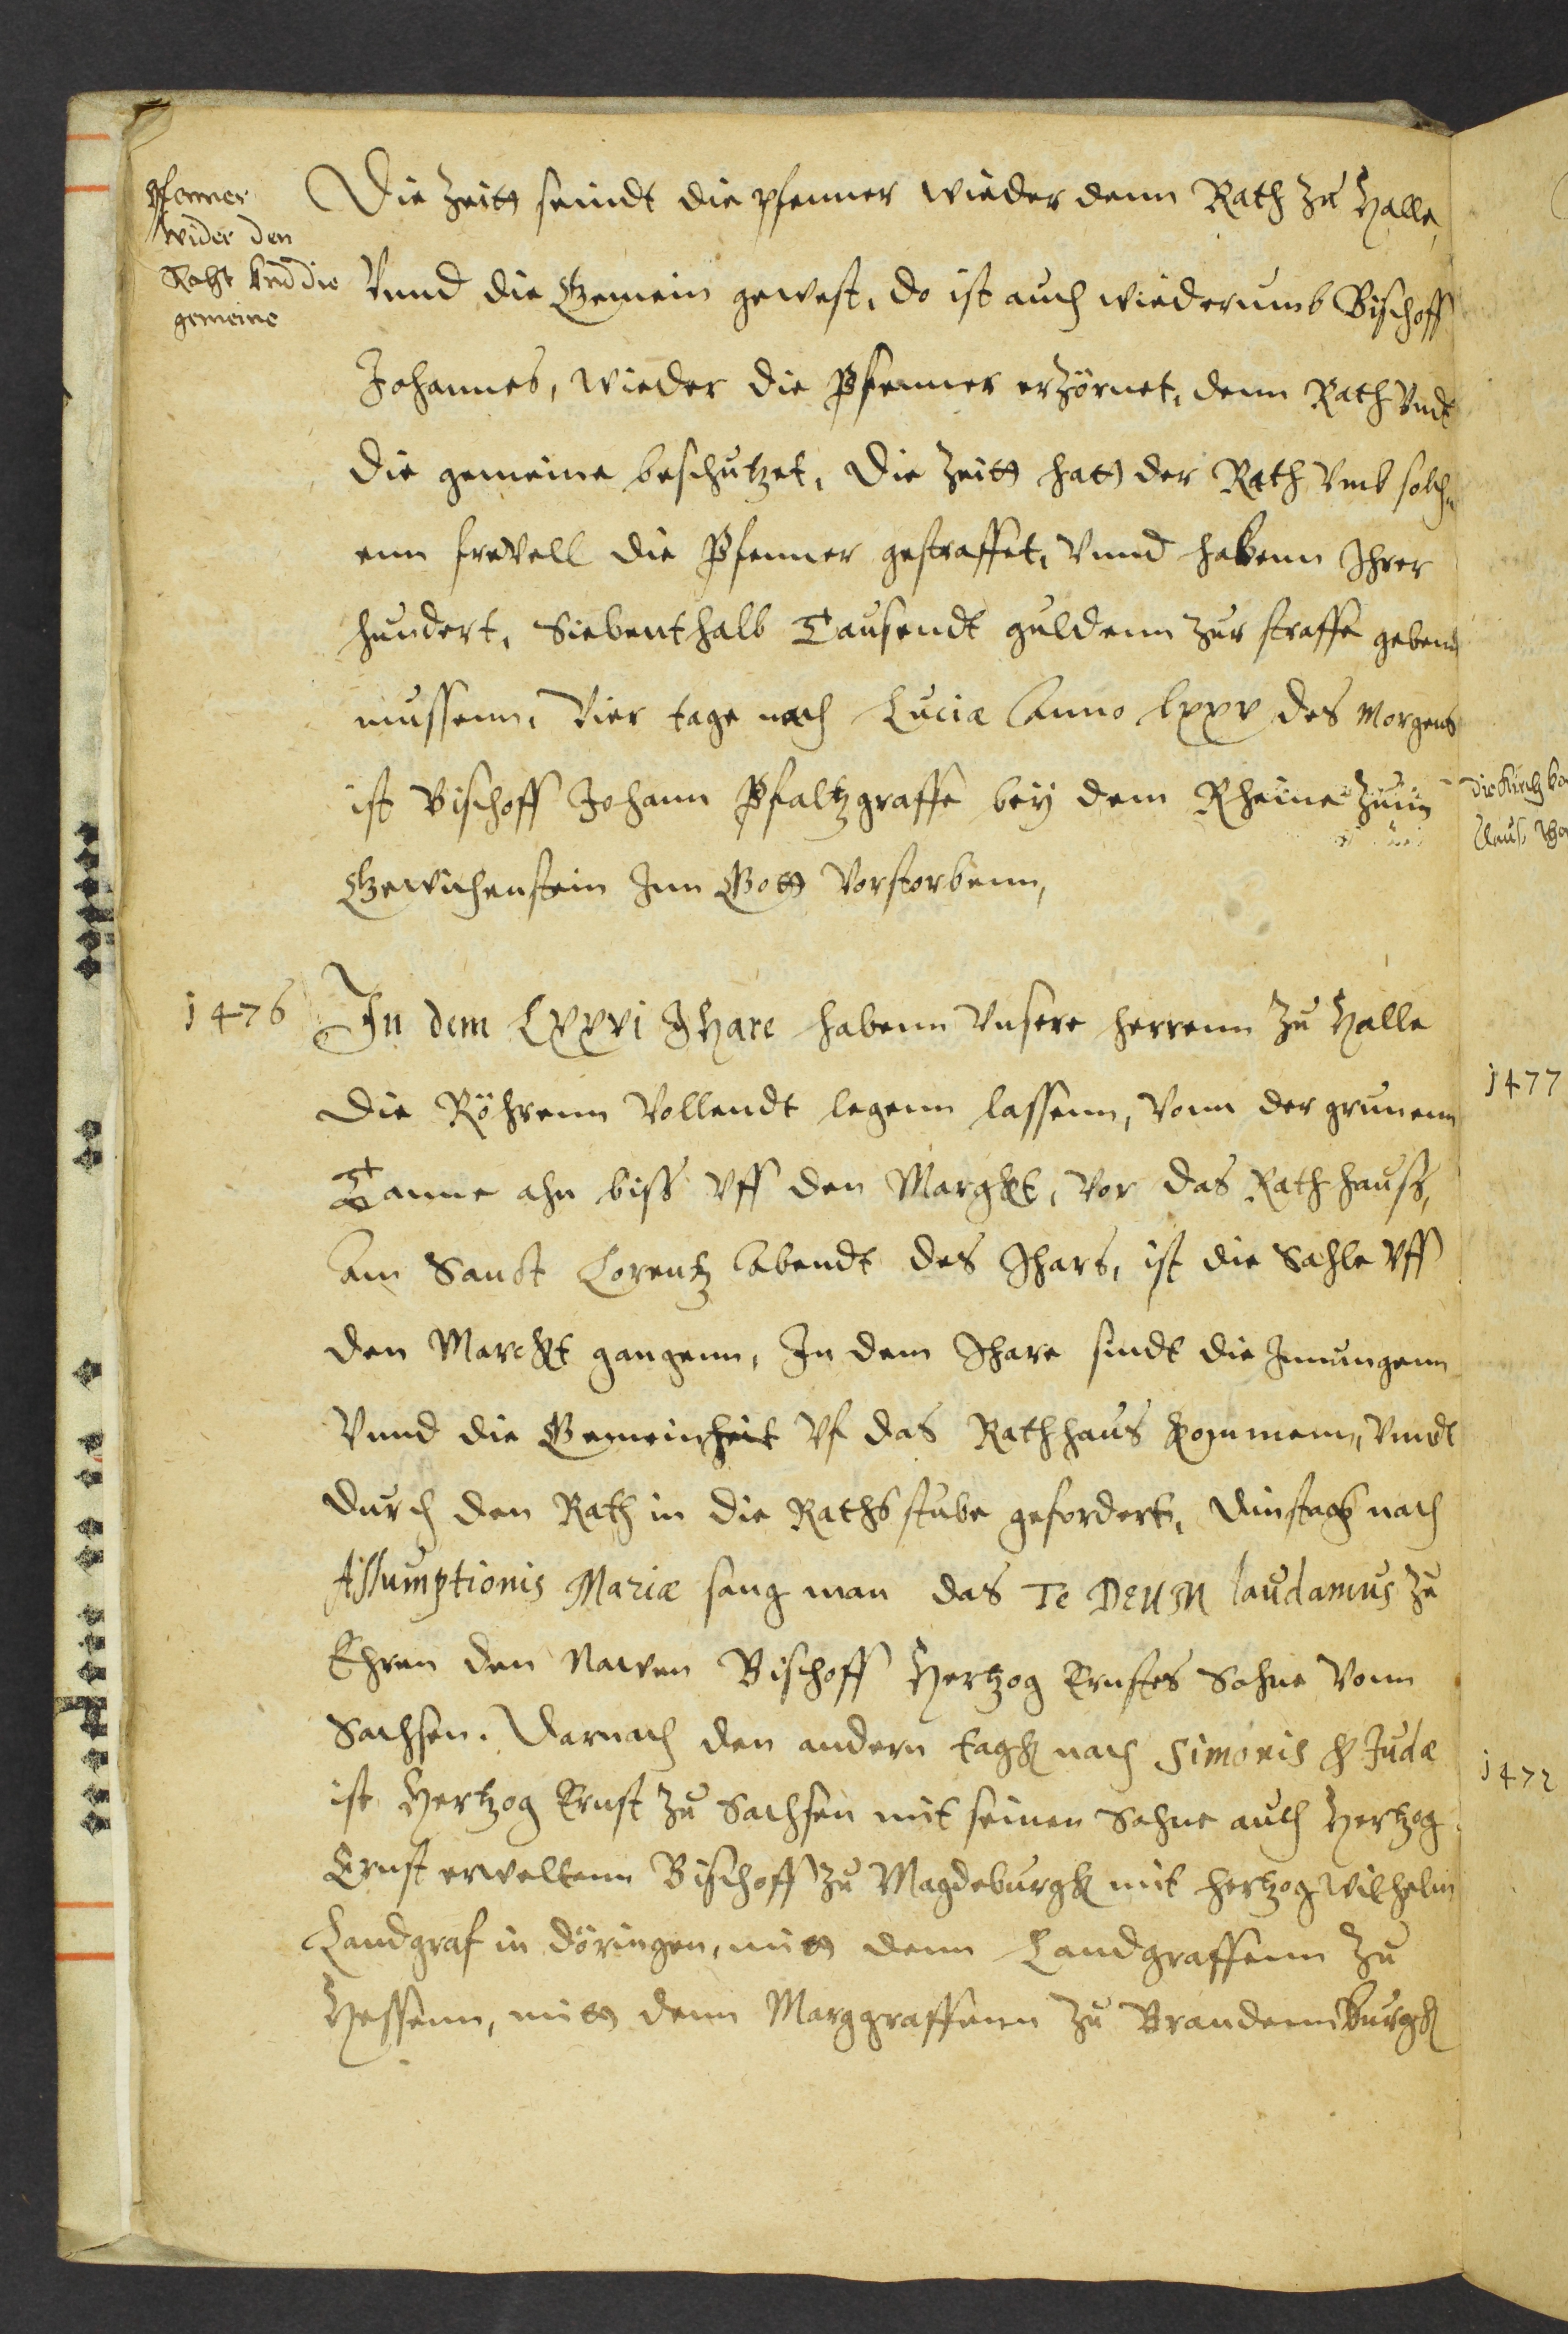 Pfenner
wider den
Raht vnd die
gemeine
Die Zeitt seindt die pfenner wieder denn Rath zu Halle,
Vnnd die Gemein gewest, do ist auch wiederumb Bischoff
Johannes, wieder die Pfenner erzörnet, denn Rath Vndt
die gemeine beschutzet, Die Zeitt hatt der Rath Vmb solch„
enn frevell die Pfenner gestraffet, Vnnd habenn Ihrer
hundert, Siebenthalb Tausendt guldenn zur straffe geben
mussenn, Vier tage nach Luciæ Anno lxxv des Morgens
ist Bischoff Johann Pfaltzgraffe bey dem Rheine zum
Gewichenstein Inn Gott Vorstorbenn,
1476
In dem Lxxvi Jhare habenn Vnsere herrenn zu Halle
die Röhrenn Vollendt legenn lassenn, Vonn der grunenn
Tanne ahn biss Vff den Marghkt, Vor das Rathhauss,
Am Sanct Lorentz Abendt des Jhars, ist die Sahle Vff
den Marckt gangenn, In dem Jhare sindt die Innungenn
Vnnd die Gemeinheit Vf das Rathhaus kommenn, Vnndt
durch den Rath in die Rathsstube gefordert, Dinstagk nach
Assumptionis Mariæ sang man das Te DEUM laudamus zu
Ehren den Nawen Bischoff Hertzog Ernstes Sohne Vonn
Sachsen. Darnach den andern tagk nach Simonis & Judæ
ist Hertzog Ernst zu Sachsen mit seinen Sohne auch Hertzog
Ernst erweltenn Bischoff zu Magdeburgk mit hertzog Wilhelm
Landgraf in döringen, mitt denn Landgraffenn zu
Hessenn, mitt denn Marggraffenn zu Brandennburgk
die Kirch
1477
1472